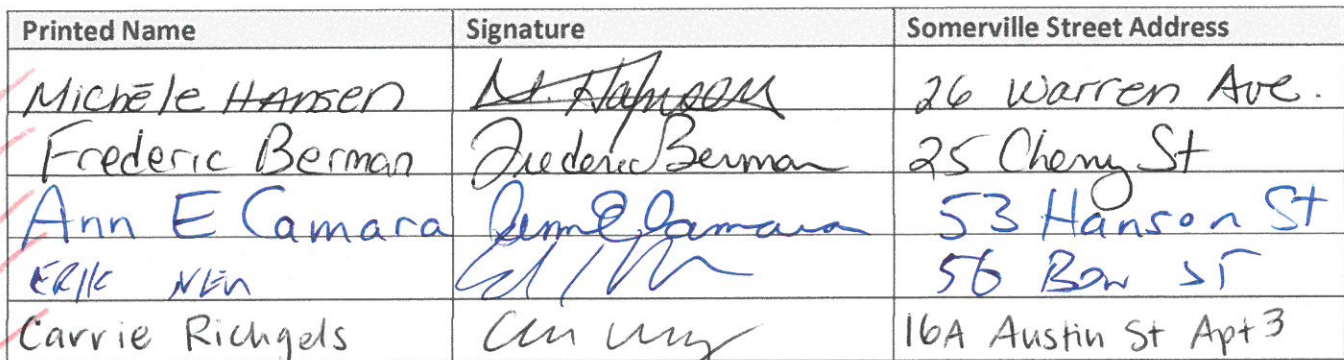 Printed Name Signature Somerville Street Address
Michèle Hansen M. Hansen 26 Warren Ave.
Frederic Berman Frederic Berman 25 Cherry St
Ann E Camara Ann E Camara 53 Hanson St
ERIK 56 Bow ST
Carrie Richgels 16A Austin St Apt 3